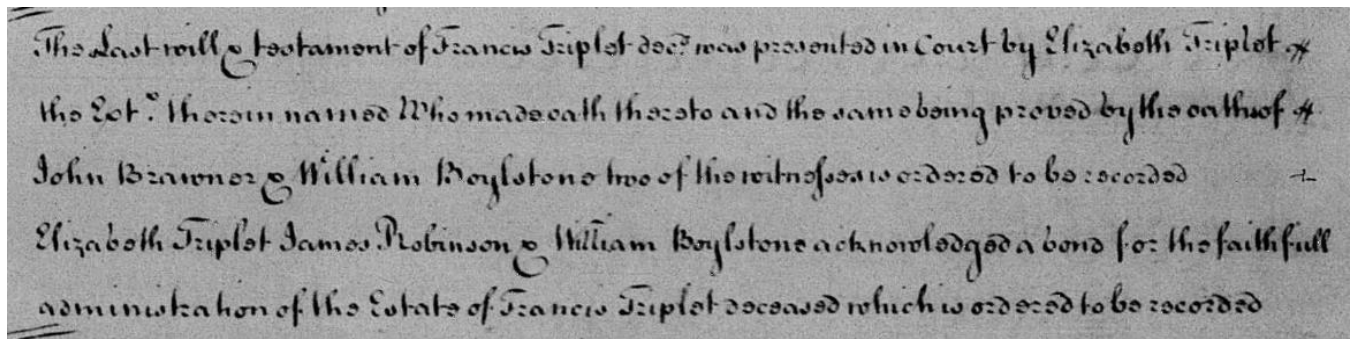 The Last will & testament of Francis Triplet dec.d was presented in Court by Elizabeth Triplet
the Ext.x therein named Who made oath thereto and the same being proved by the oaths of
John Brawner & William Boylstone two of the witnesses is ordered to be recorded
Elizabeth Triplet James Robinson & William Boylstone acknowledged a bond for the faithfull
administration of the Estate of Francis Triplet deceased which is ordered to be recorded